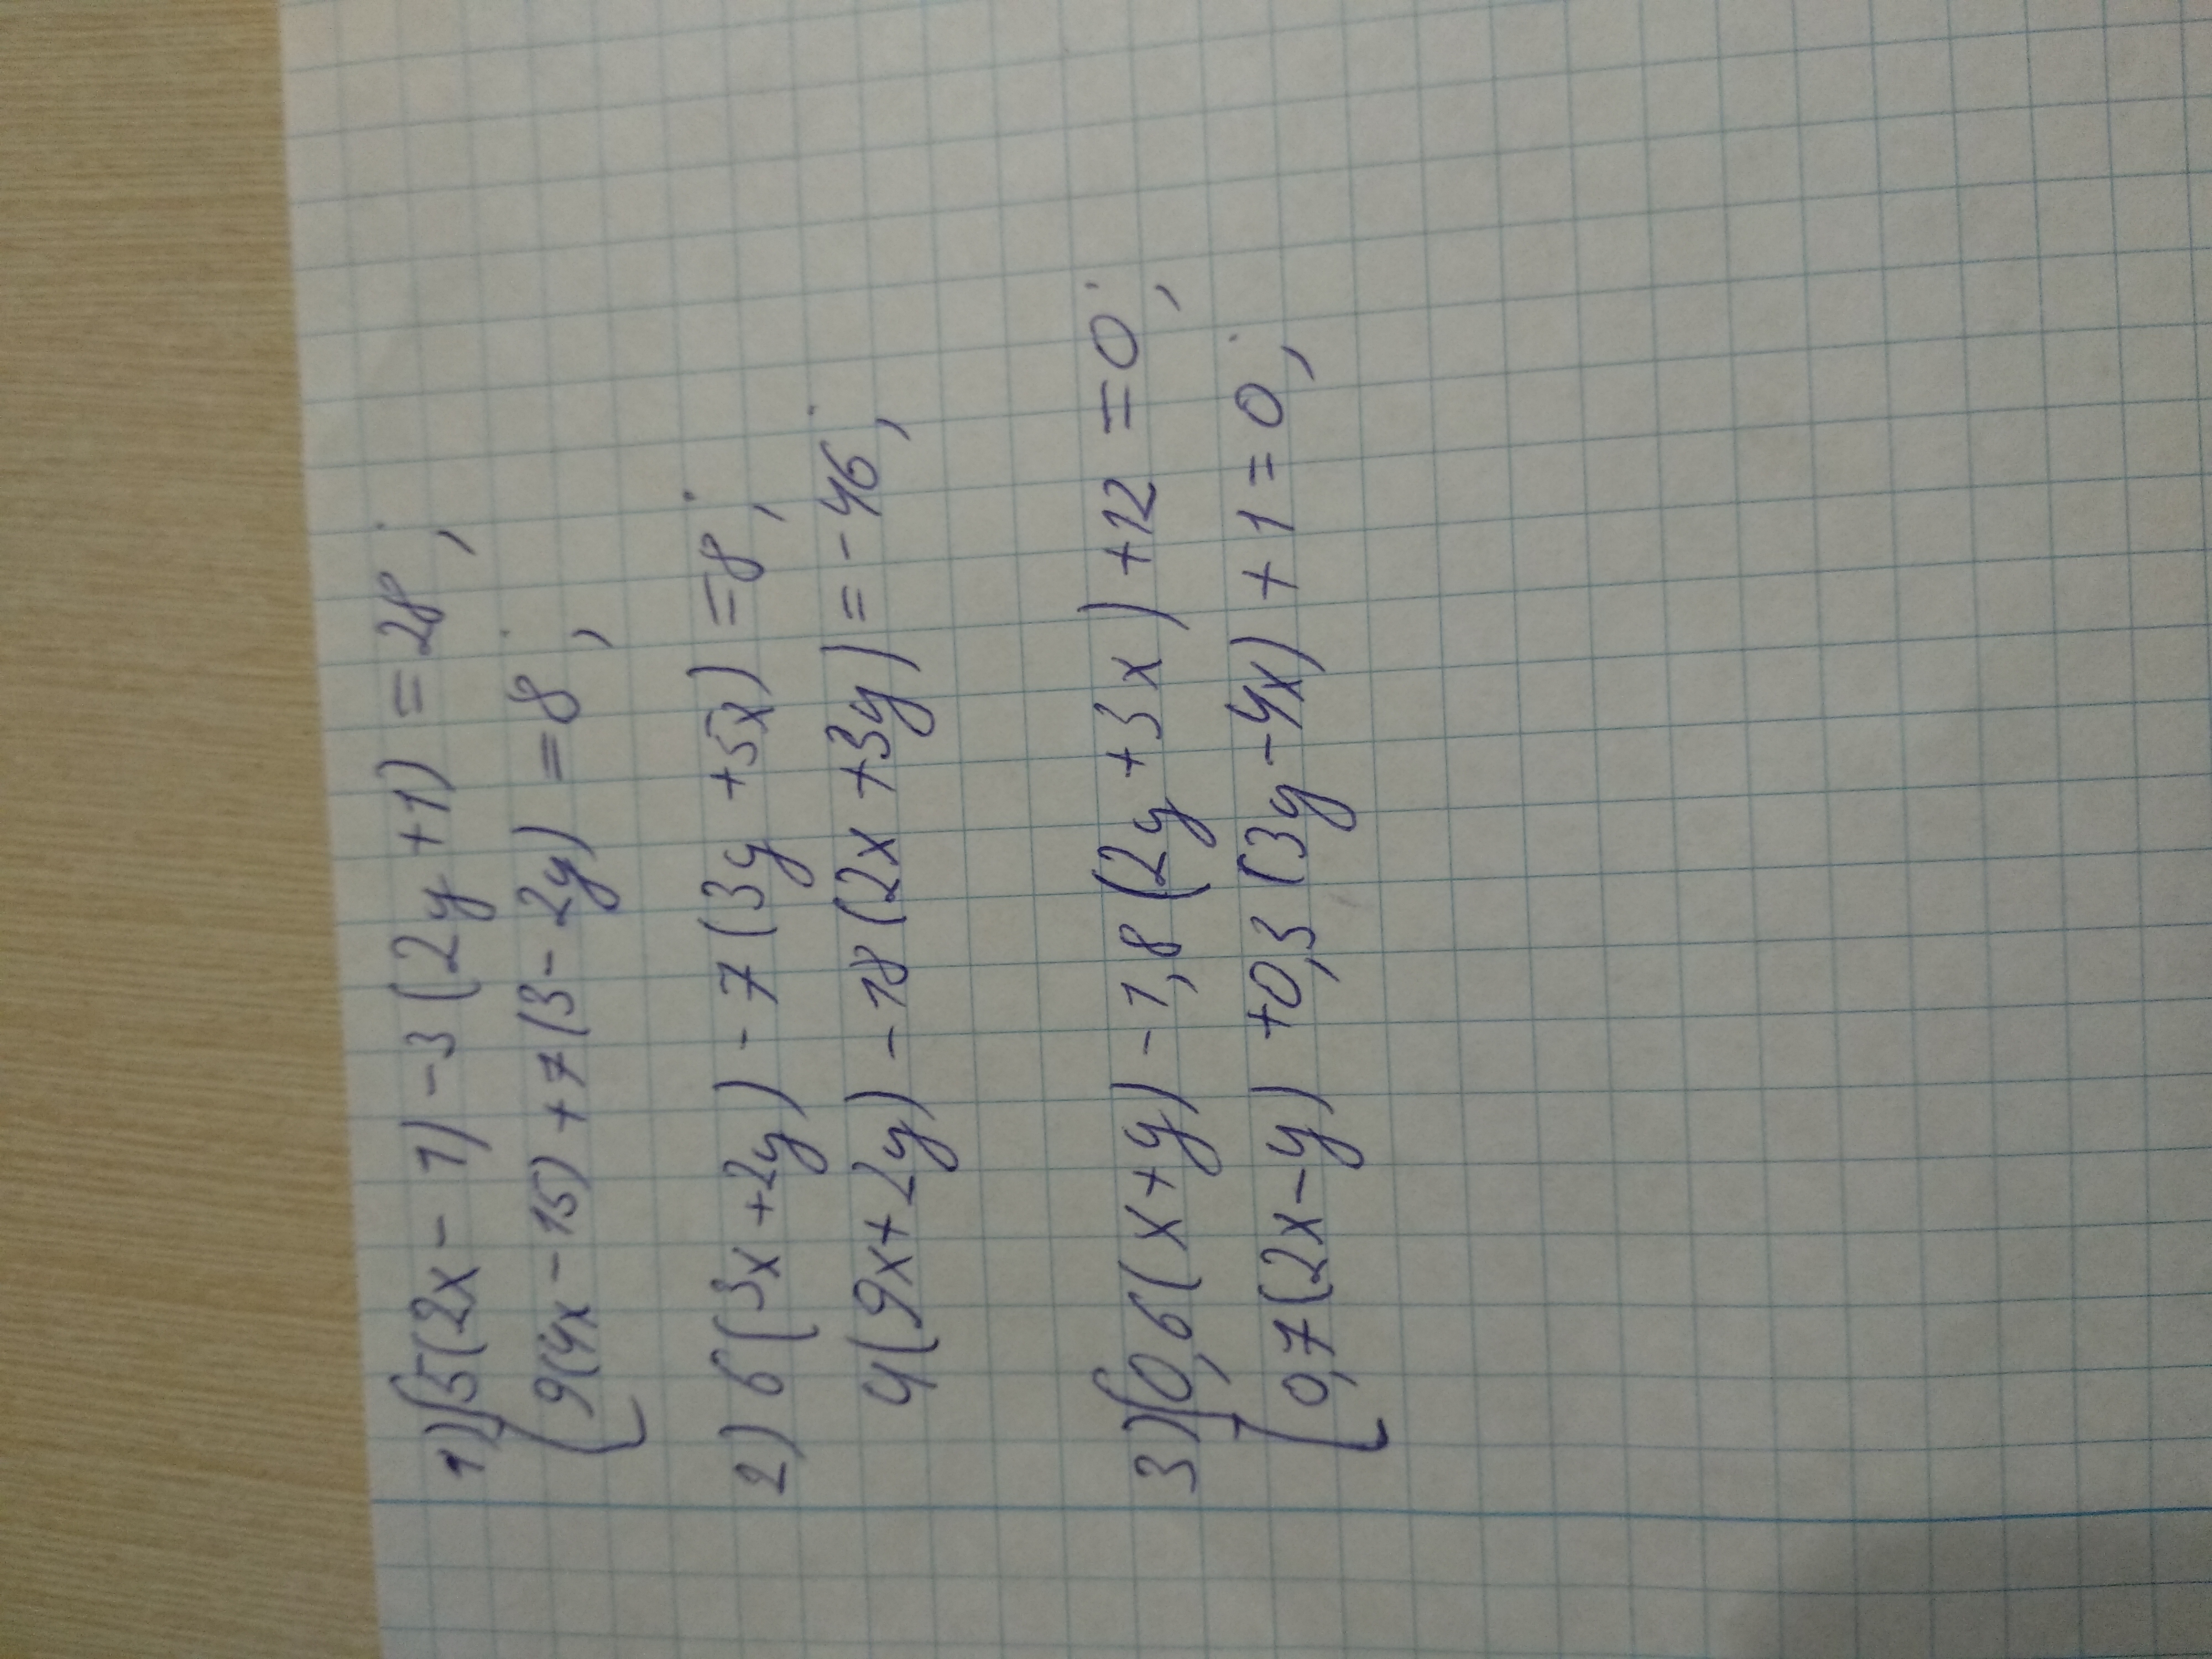 1) { 5(2x - 1) - 3(2y + 1) = 28 ;
{ 9(4x - 15) + 7(3 - 2y) = 8 ;
2) 6(3x + 2y) - 7(3y + 5x) = 8 ;
4(9x + 2y) - 18(2x + 3y) = - 46 ;
3) { 0,6(x + y) - 1,8(2y + 3x) + 12 = 0 ;
{ 0,7(2x - y) + 0,3(3y - 4x) + 1 = 0 ;